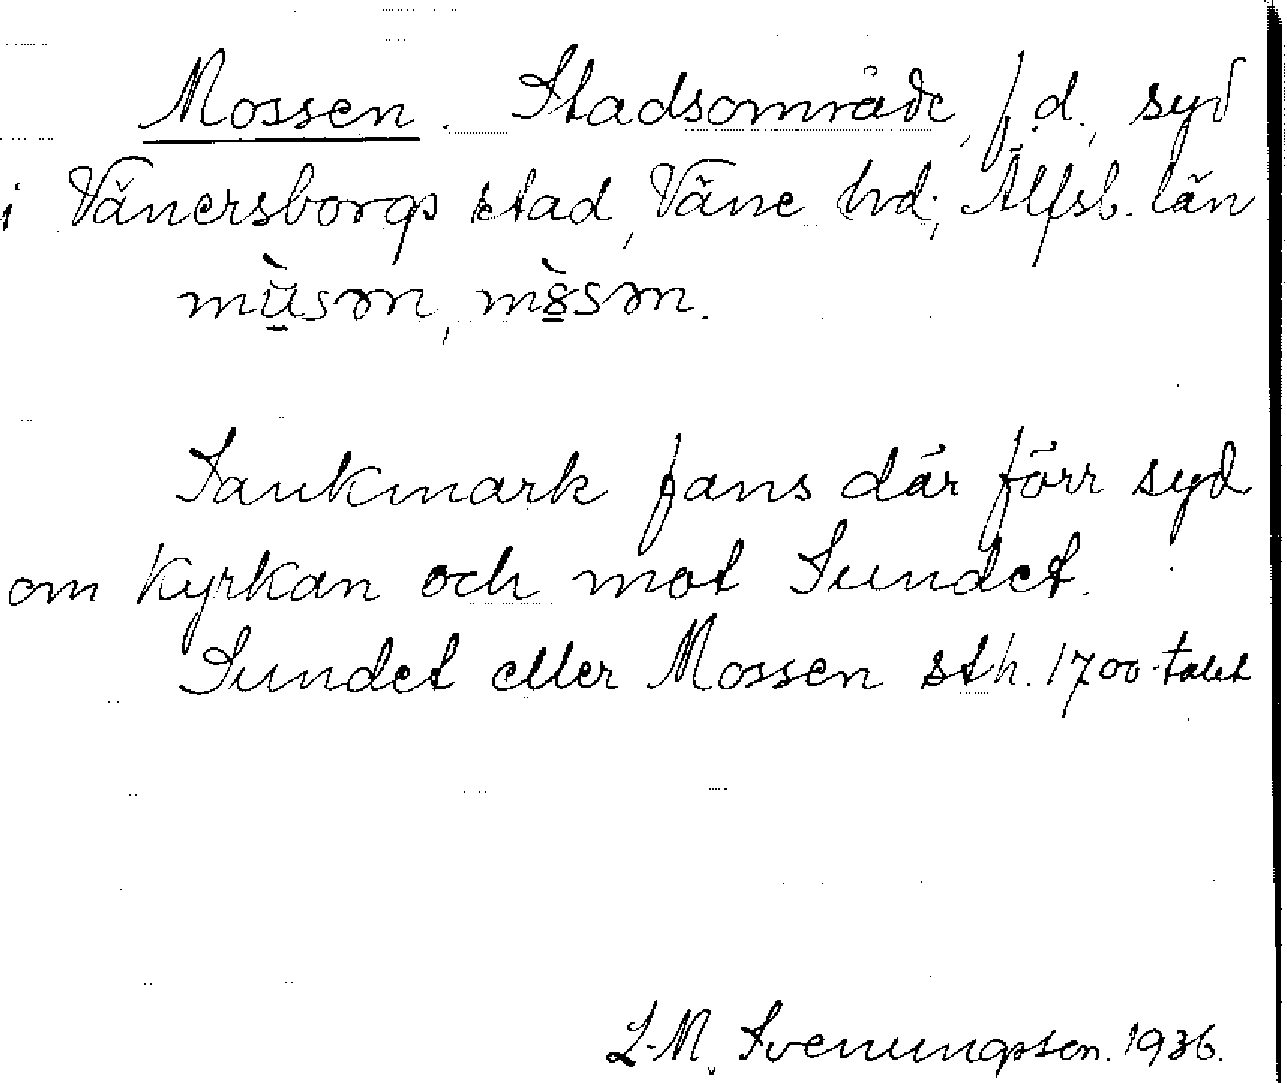 Mossen. Stadsområde, f.d., syd
i Vänersborgs stad, Väne hd; Älfsb. län
Sankmark fans där förr syd
om kyrkan och mot Sundet.
Sundet eller Mossen sth. 1700-talet
L-M. Svenungsson. 1936.